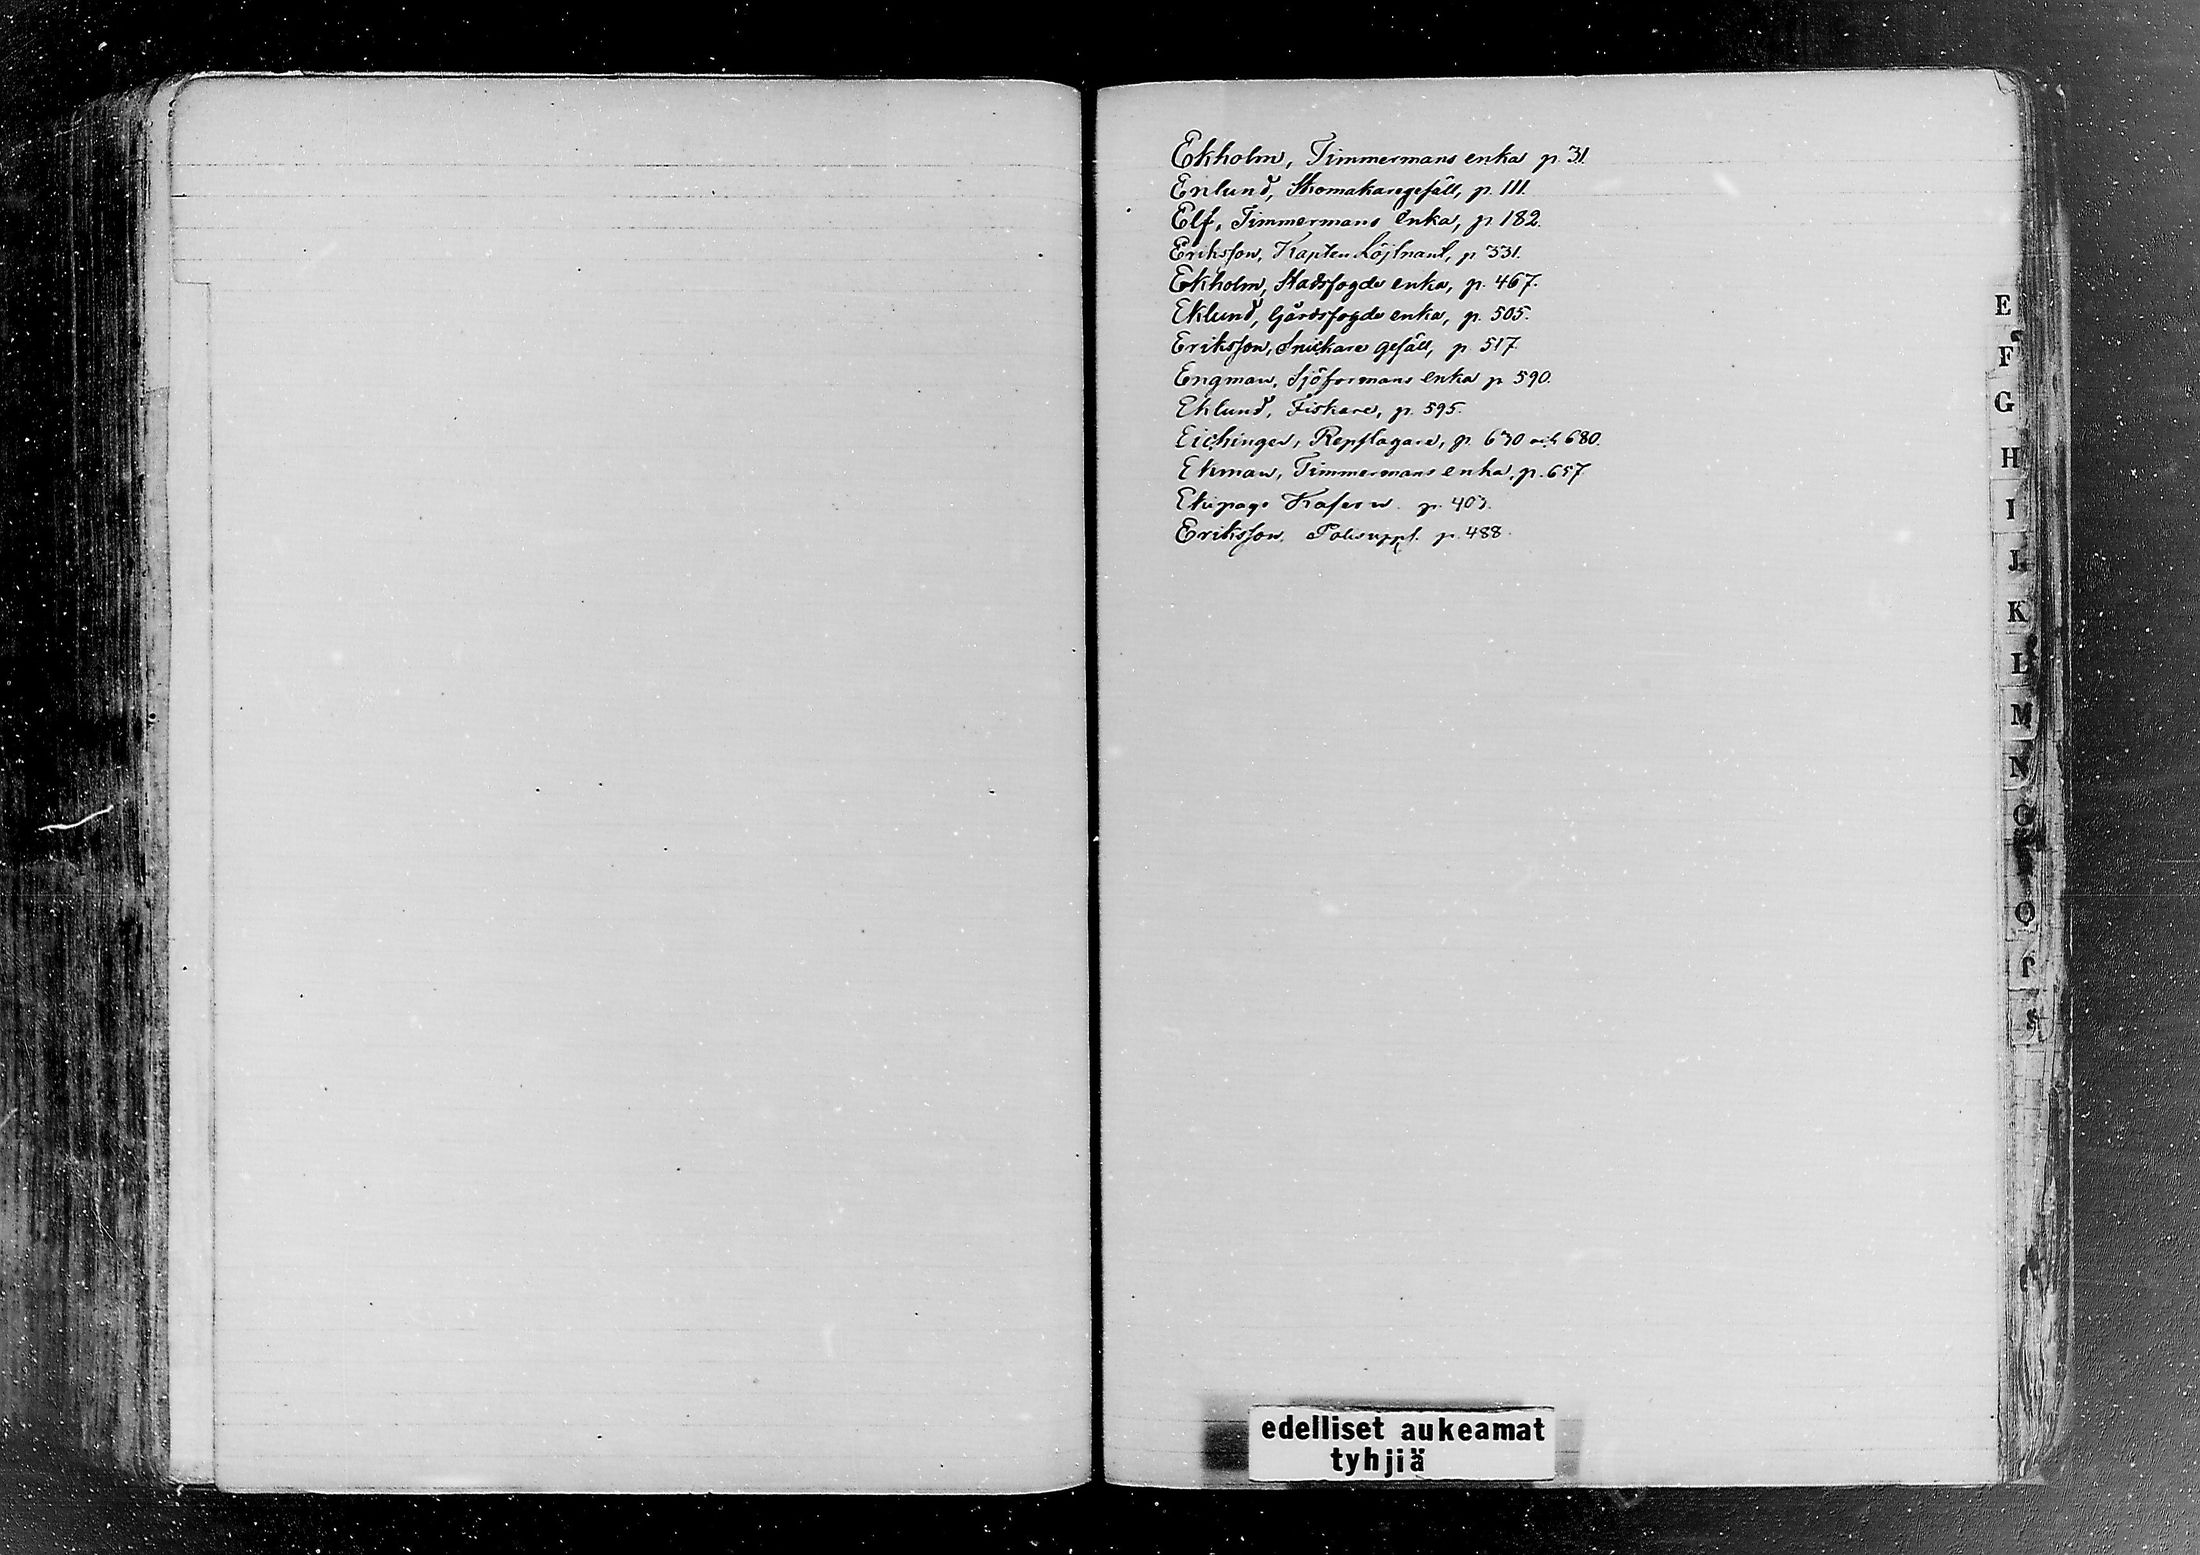 Ekholm, Timmermans enka p. 31.
Enlund, Skomakaregesäll, p. 111.
Elf, Timmermans enka, p. 182.
Eriksson, Kapten Löjtnant, p. 331.
Ekholm, Stadsfogde enka, p. 467.
Eklund, Gårdsfogde enka, p. 505.
Eriksson, Snickare gesäll, p. 517.
Engman, Sjöformans enka p. 590.
Eklund, Fiskare, p. 595.
Eichinger, Repslagare, p. 630 och 680.
Ekman, Timmermans enka, p. 657.
Ekipage Kasern. p. 403.
Eriksson. Polisupps. p. 488.
E
F
G
H
I
J
K
L
M
N
O
Q
S
edelliset aukeamat
tyhjiä